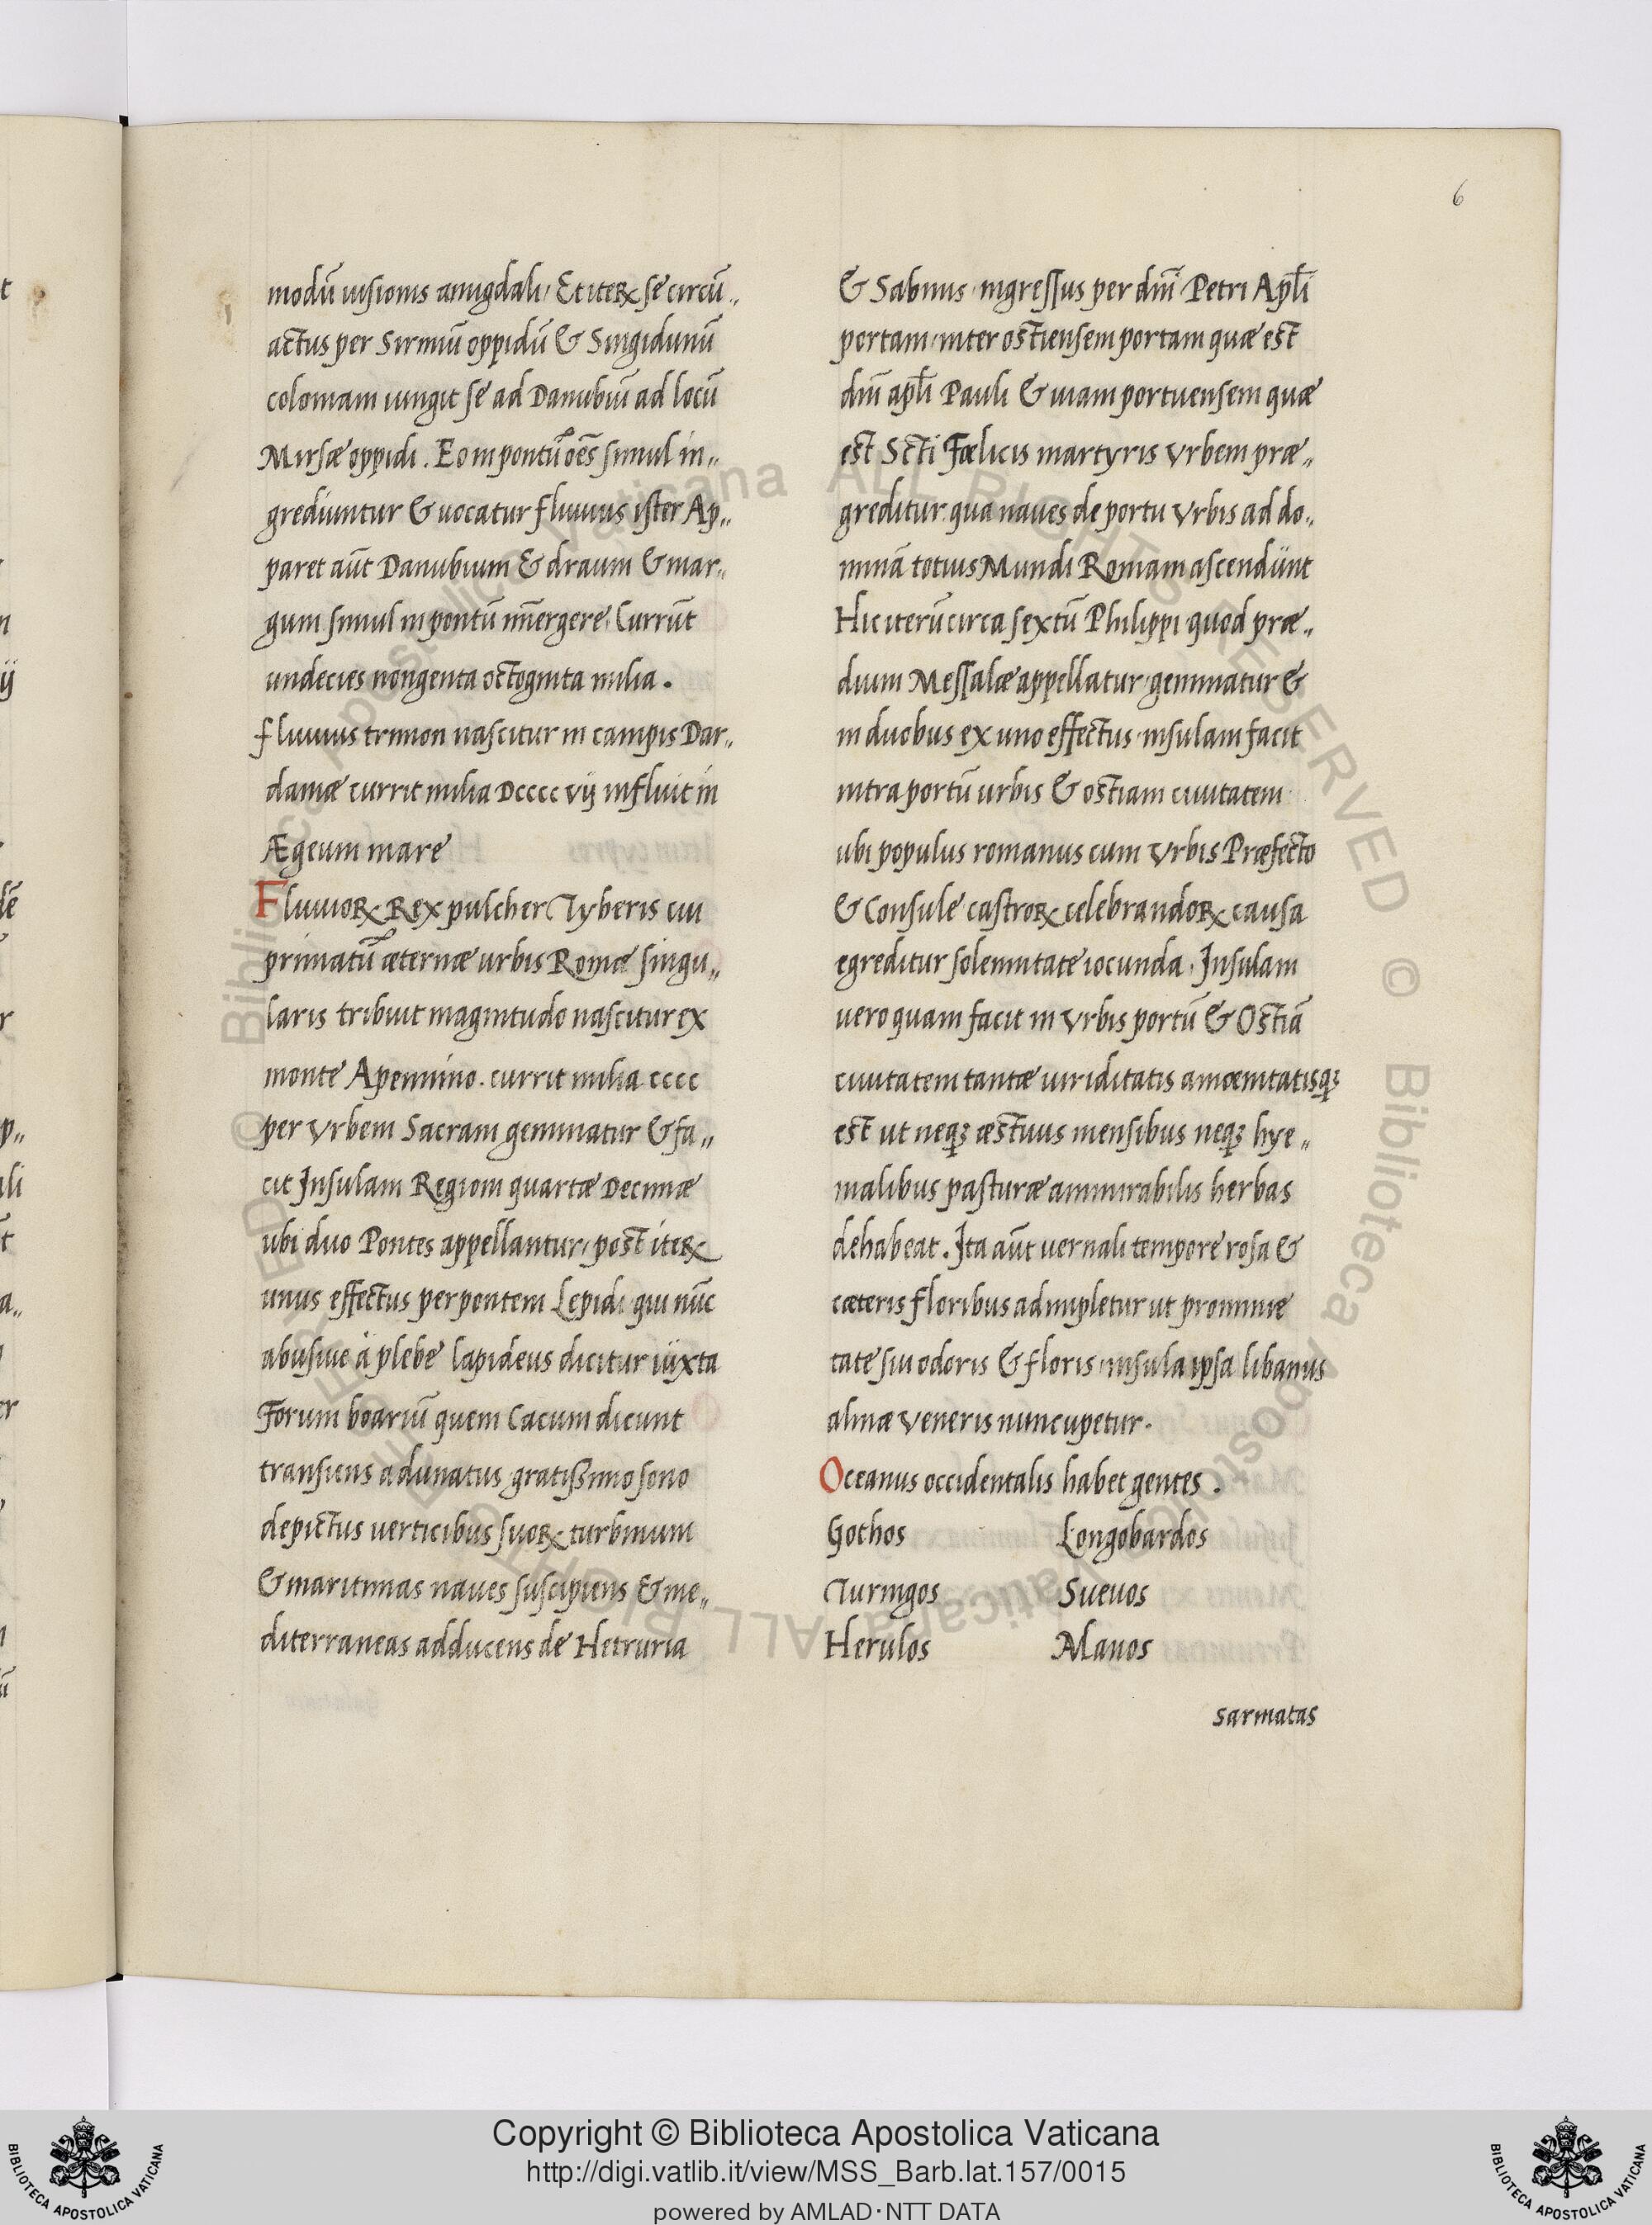 6
modū uisionis amigdali, Et iteꝝ se circū„
actus per Sirmiū oppidū & Singidunū
coloniam iungit se ad Danubiū ad locū
Mirsæ oppidi. Eo in pontū oēs simul in„
grediuntur & uocatur fluuius ister Ap„
paret aūt Danubium & draum & mar„
gum simul in pontū īmergere. Currūt
undecies nongenta octoginta milia.
fluuius trimon nascitur in campis Dar„
daniæ currit milia Dcccc vij influit in
Ægeum mare
Fluuioꝝ Rex pulcher Tyberis cui
primatū æternæ urbis Romæ singu„
laris tribuit magnitudo nascitur ex
monte Apennino. currit milia cccc
per Vrbem Sacram geminatur & fa„
cit Insulam Regioni quartæ Decimæ
ubi duo Pontes appellantur, post iteꝝ
unus effectus per pontem Lepidi qui nūc
abusiue à plebe lapideus dicitur iuxta
Forum boariū quem Cacum dicunt
transiens adunatus gratißimo sono
depictus uerticibus suoꝝ turbinum
& maritimas naues suscipiens & me„
diterraneas adducens de Hetruria
& Sabinis ingressus per dnī Petri Apłi
portam, inter ostiensem portam quæ est
dnī apłi Pauli & uiam portuensem quæ
est Scti Fœlicis martyris Vrbem præ„
greditur qua naues de portu Vrbis ad do„
minā totius Mundi Romam ascendunt
Hic iterū circa sextū Philippi quod præ„
dium Messalæ appellatur geminatur &
in duobus ex uno effectus insulam facit
intra portū urbis & ostiam ciuitatem
ubi populus romanus cum Vrbis Præfecto
& Consule castroꝝ celebrandoꝝ causa
egreditur solemnitate iocunda. Insulam
uero quam facit in Vrbis portū & Ostiā
ciuitatem tantæ uiriditatis amœnitatisqꝫ
est ut neqꝫ æstiuis mensibus neqꝫ hye„
malibus pasturæ ammirabilis herbas
dehabeat. Ita aūt uernali tempore rosa &
cæteris floribus adimpletur ut pro nimie
tate sui odoris & floris insula ipsa libanus
almæ Veneris nuncupetur.
Oceanus occidentalis habet gentes.
Gothos Longobardos
Turingos Sueuos
Herulos Alanos
sarmatas
Copyright © Biblioteca Apostolica Vaticana
http://digi.vatlib.it/view/MSS_Barb.lat.157/0015
powered by AMLAD·NTT DATA